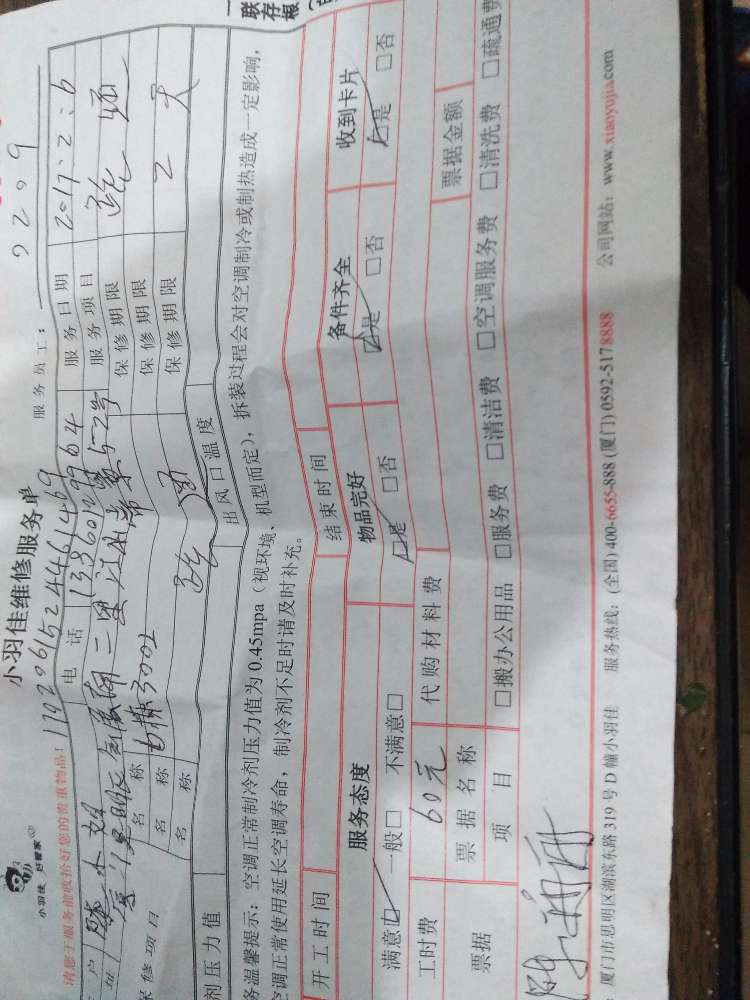 联
存
根
小羽佳 好管家
小羽佳维修服务单
9209
请您于服务前收拾好您的贵重物品!
服务员工:
户 小姐 电 话 服务日期 2017、2、6
址 服务项目
保修项目 名 称 七栋3002 保修期限
名 称 保修期限
名 称 保修期限 2天
剂压力值 出风口温度
务温馨提示:空调正常制冷剂压力值为 0.45mpa(视环境、机型而定),拆装过程会对空调制冷或制热造成一定影响,
空调正常使用延长空调寿命,制冷剂不足时请及时补充。
开工时间 结束时间
服务态度 物品完好 备件齐全 收到卡片
满意☑ 一般□ 不满意□ ☑是 □否 ☑是 □否 ☑是 □否
工时费 60元 代购材料费
票据 票据名称 票据金额
项 目 □搬办公用品 □服务费 □清洁费 □空调服务费 □清洗费 □疏通费
厦门市思明区湖滨东路 319 号 D 幢小羽佳 服务热线:(全国) 400-6655-888 (厦门) 0592-5178888 公司网站:www.xiaoyujia.com